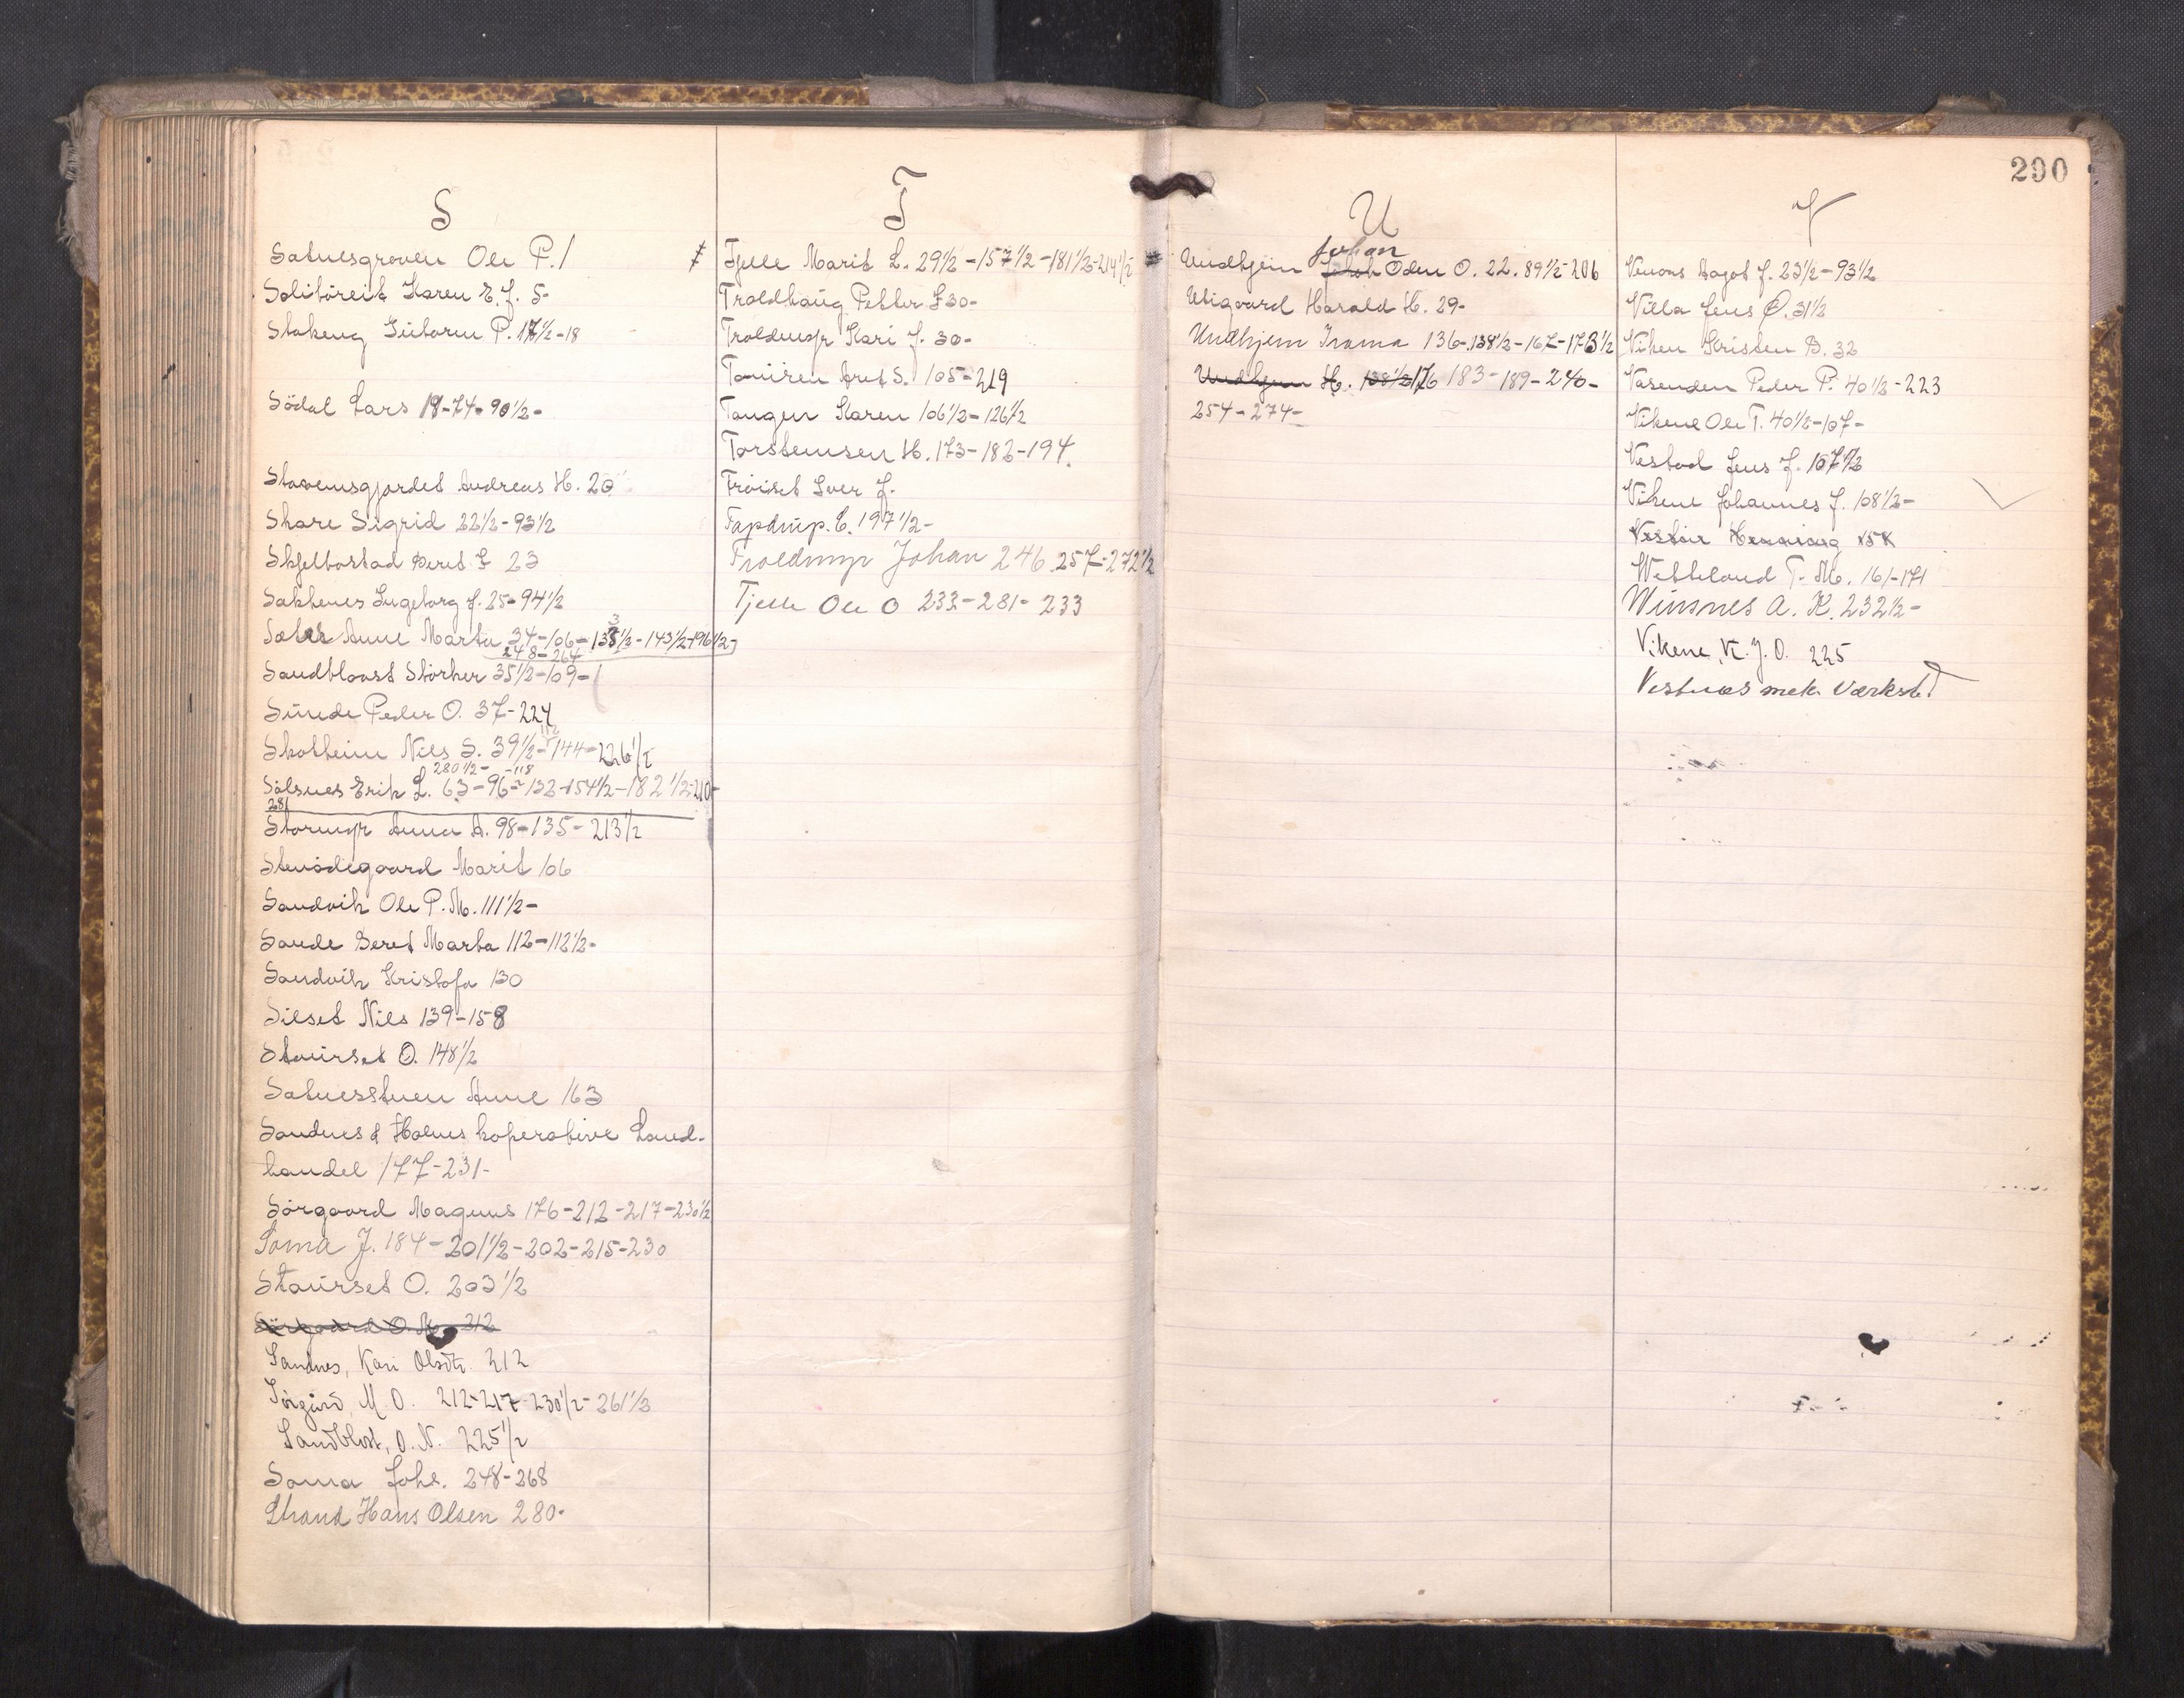 290
S
Satnesgroven Ole P. 1
Solitöreit Karen E. J. 5-
Stokeng Gutorm P. 17½-18
Södal Lars 19-74-90½-
Stavemsgjordet Andreas H. 20
Skare Sigrid 22½-93½
Skjelbostad Beret 23
Sakkenes Ingeborg J. 25-94½
Anne Marta 34-106-135½-143½-196½-
248-264
Sandbloost Störker 35½-109-
Sünde Peder O. 37-224
Skotheim Nils S. 39½-112-144-226½
280½- -118
Sölsnes Erik L. 63-96-132-154½-182½-210-
281
Stormyr Anna A. 98-135-213½
Stenödegaard Marit 106
Sandvik Ole P. M. 111½-
Sande Beret Marta 112-112½-
Sandvik Kristofa 130
Silset Nils 139-158
Staurset O. 148½
Satnesstuen Anne 163
Sandnes & Holnes koperative Land-
handel 177-231-
Sörgaard Magnus 176-212-217-230½
Soma J. 184-201½-202-215-230
Staurset O. 203½
Sörgaard O. M. 212
Sandnes, Kari Olsdtr. 212
Sörgård, M. O. 212-217-230½-261½
Sandblost, O. N. 225½
Soma Johs. 248-268
Strand Hans Olsen 280-
T
Tjelle Marit L. 29½-157½-181½-214½
Troldhaug Petter 30-
Troldmyr Kari J. 30-
Aret S. 105-219
Tangen Karen 106½-126½
Torstensen H. 173-182-194.
Tröiset Iver J.
Tapdrup. C. 197½-
Troldmyr Johan 246 257-272½
Tjelle Ole O 232-281-233
U
Johan
Undhjem Oden O. 22. 89½-206
Utigaard Harald H. 29-
Undhjem Irama 136-138½-167-173½
Undhjem H. 138½ 176 183-189-240-
254-274-
V
Dagot J. 23½-93½
Villa Jens O. 31½
Viken Kristen B. 32
Vasenden Peder P. 40½-223
Vikene Ole T. 40½-107-
Vestad Jens J. 107½
Vikene Johannes J. 108½-
Henning 15
Wetteland T. M. 161-171
Winsnes A. K. 232½-
Vikene, K. J. O. 225
Vestnes mek. Værksted